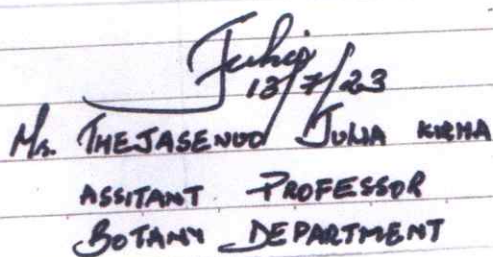 Julia
13/7/23
Ms. THEJASENUO JULIA KIRHA
ASSITANT PROFESSOR
BOTANY DEPARTMENT